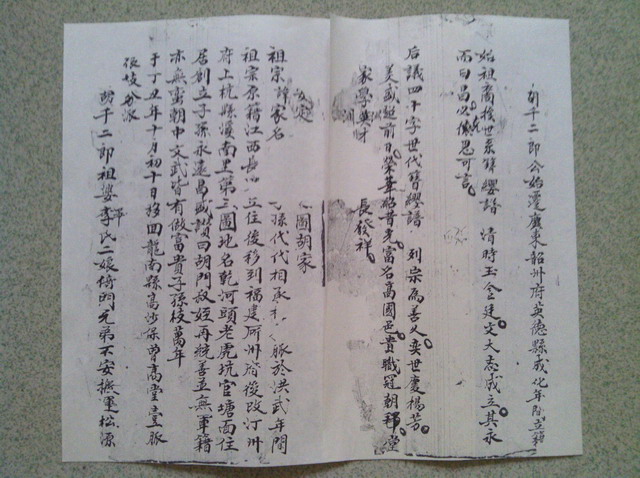 胡千二郎公始遷廣東韶州府英德縣成化年間立籍
始祖廣後世系簪纓譜 清時玉仝廷文大志成立其永
而日昌必俊思可言
后議四十字世代簪纓譜 列宗為善久奕世慶楊芳
美盛延前日榮華啟昔光富名高國邑貴職冠朝拜堂
家學英時 長發祥
祖宗譚家名 圖胡家
祖宗原籍江西長 立住後移到福建所州府後改汀州
孫代代相承 脈於洪武年間
府上杭縣溪南里第三圖地名乾河頭老虎坑官塘面住
居創立子孫永遠昌盛讚曰胡門叔姪再統善並無軍籍
亦無蛮朝中文武皆有做富貴子孫枝萬年
于丁丑年十月初十日移回龍南縣高沙保曾高堂壹脈
分派
胡千二郎祖婆李氏二娘傅門兄弟不安搬運松源